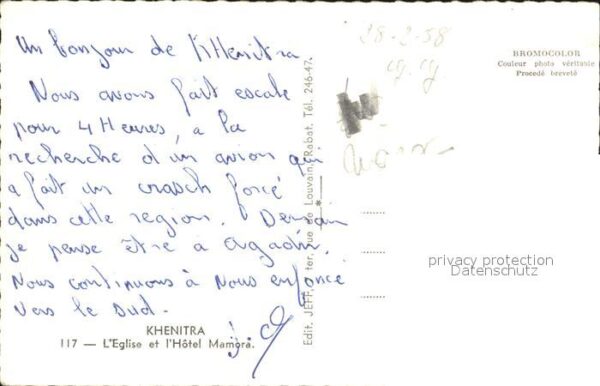 Un bonjour de Khenitra
Nous avons fait escale
pour 4 Heures, a la
recherche d'un avion qui
a fait un crasch forcé
dans cette region. Demain
je pense être à Agadir.
Nous continuons à nous enfoncé
vers le sud.
KHENITRA
117 — L'Eglise et l'Hôtel Mamora.
Edit. JEFF, ter, rue de Louvain, Rabat. Tél. 246-47.
28-2-58
Maroc
BROMOCOLOR
Couleur photo véritable
Procedé breveté
privacy protection
Datenschutz